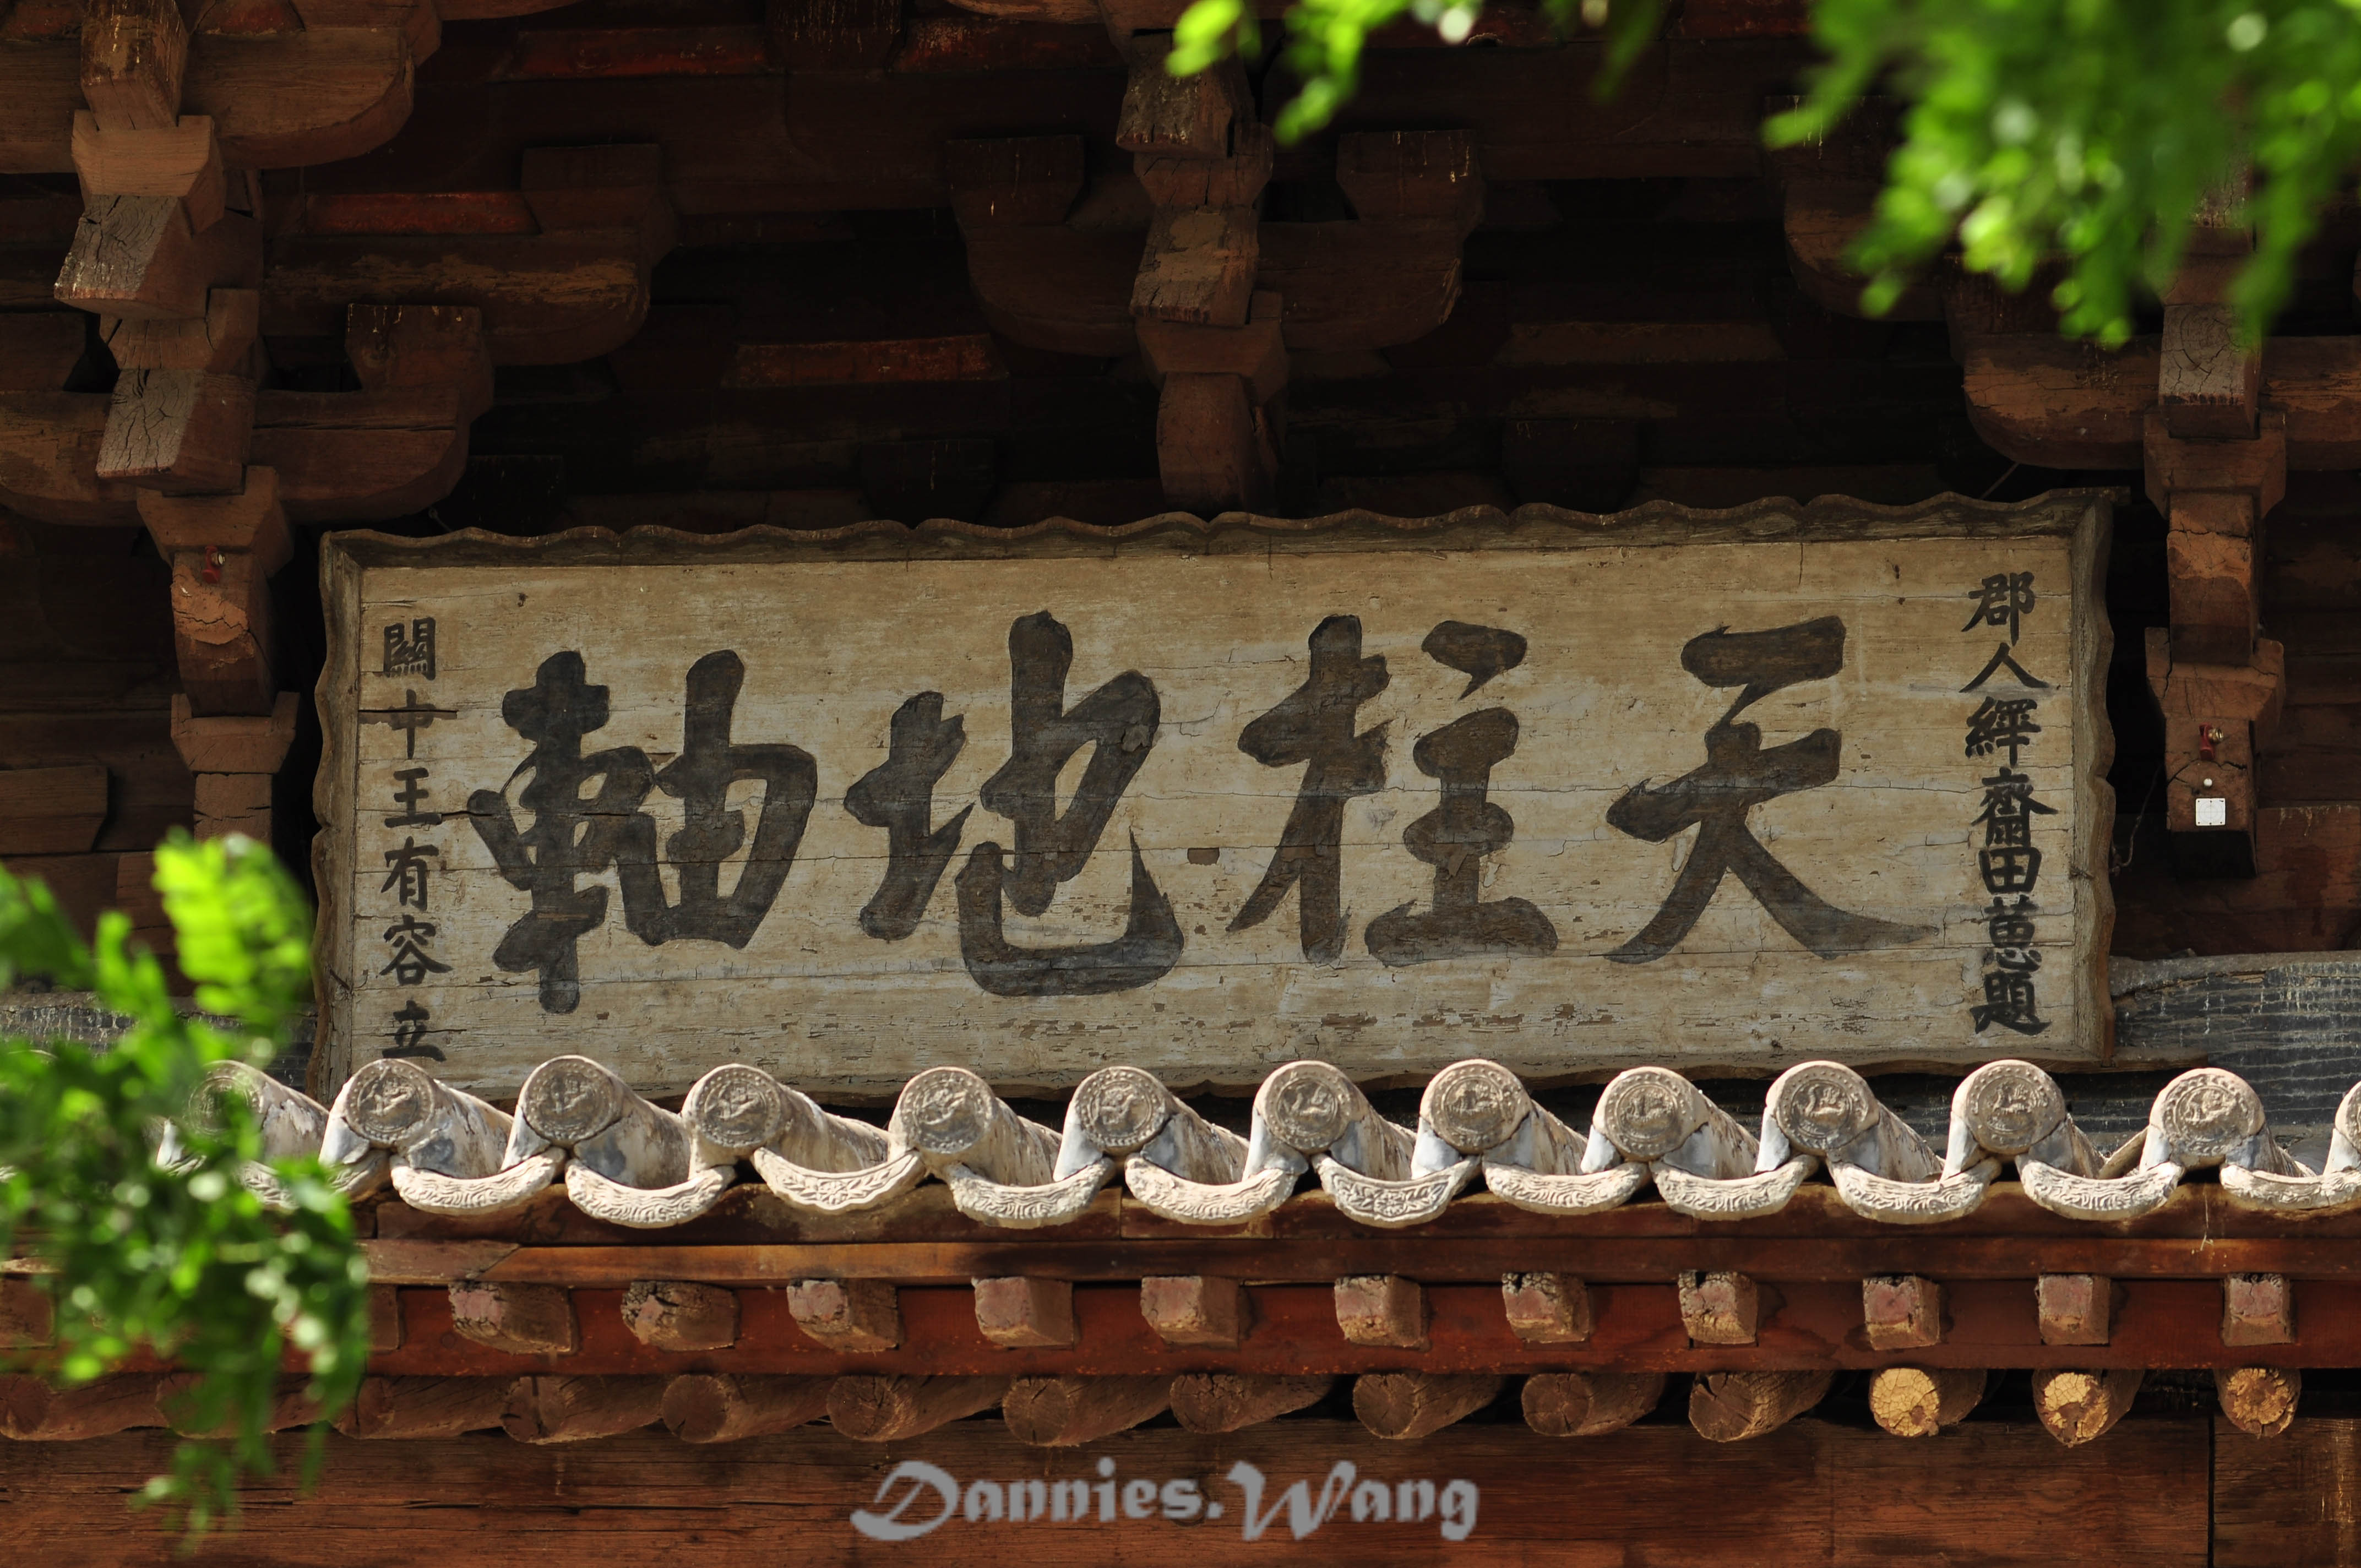 郡人繹齋田蕙題
天柱地軸
關中王有容立
Dannies.Wang